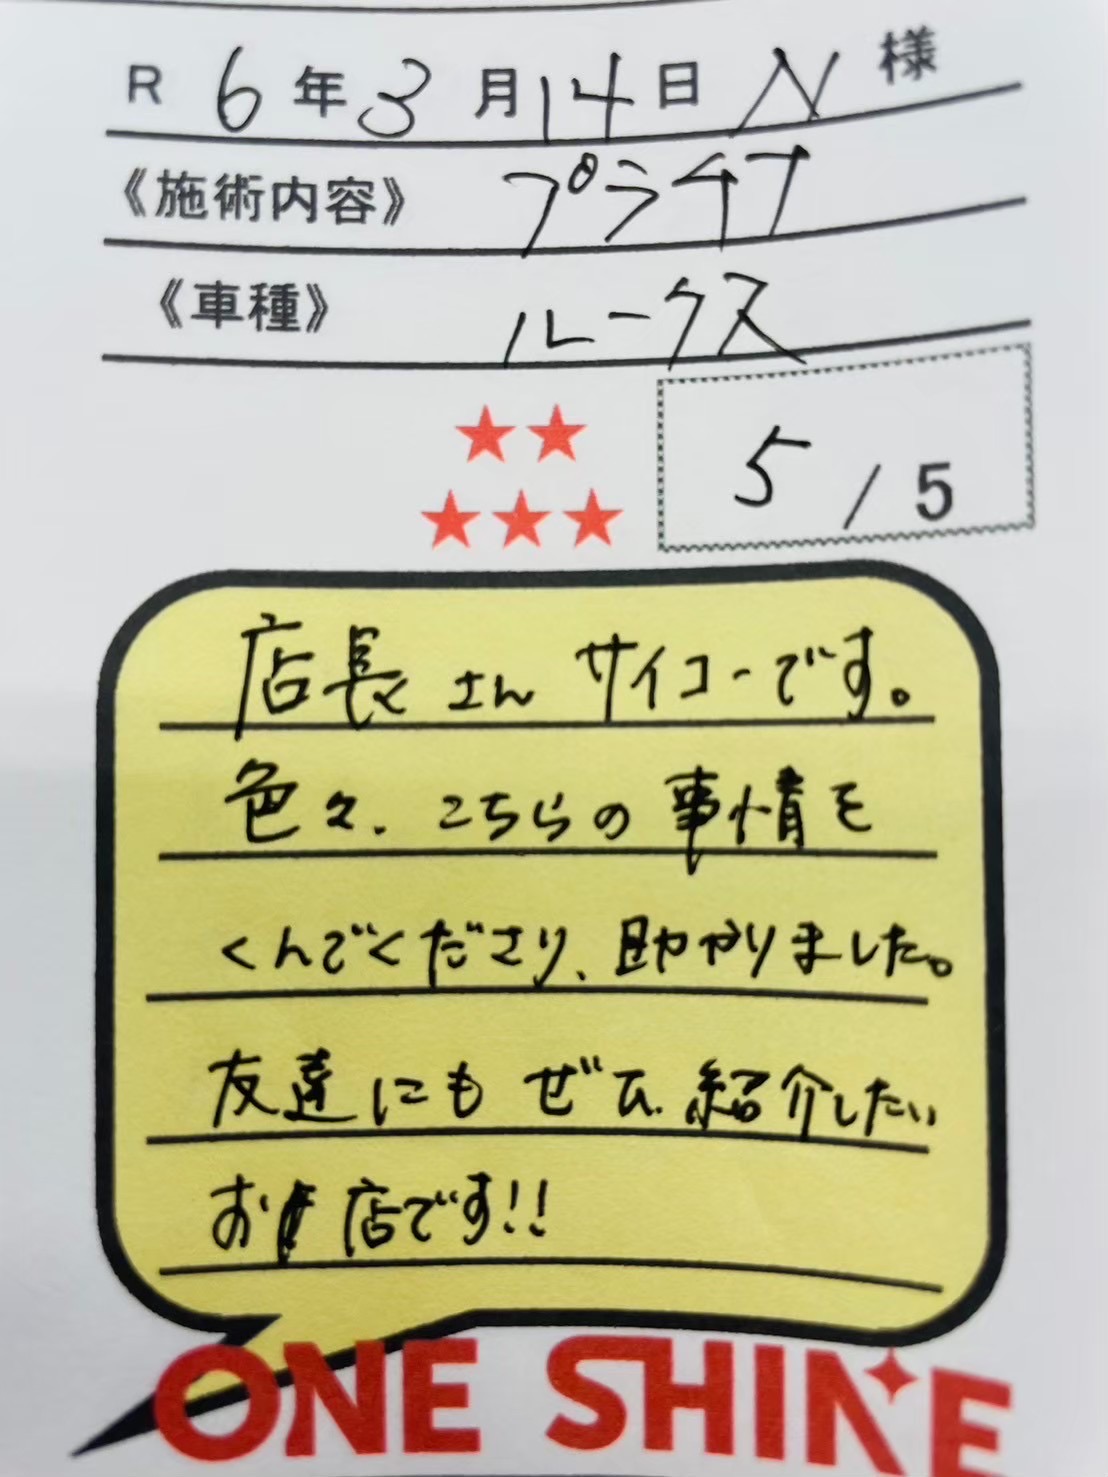 R 6年3月14日 N 様
《施術内容》 プライブ
《車種》 ルークス
5/5
店長さん サイコーです。
色々、こちらの事情を
くんでくださり、助かりました。
友達にもぜひ紹介したい
お店です!!
ONE SHINE